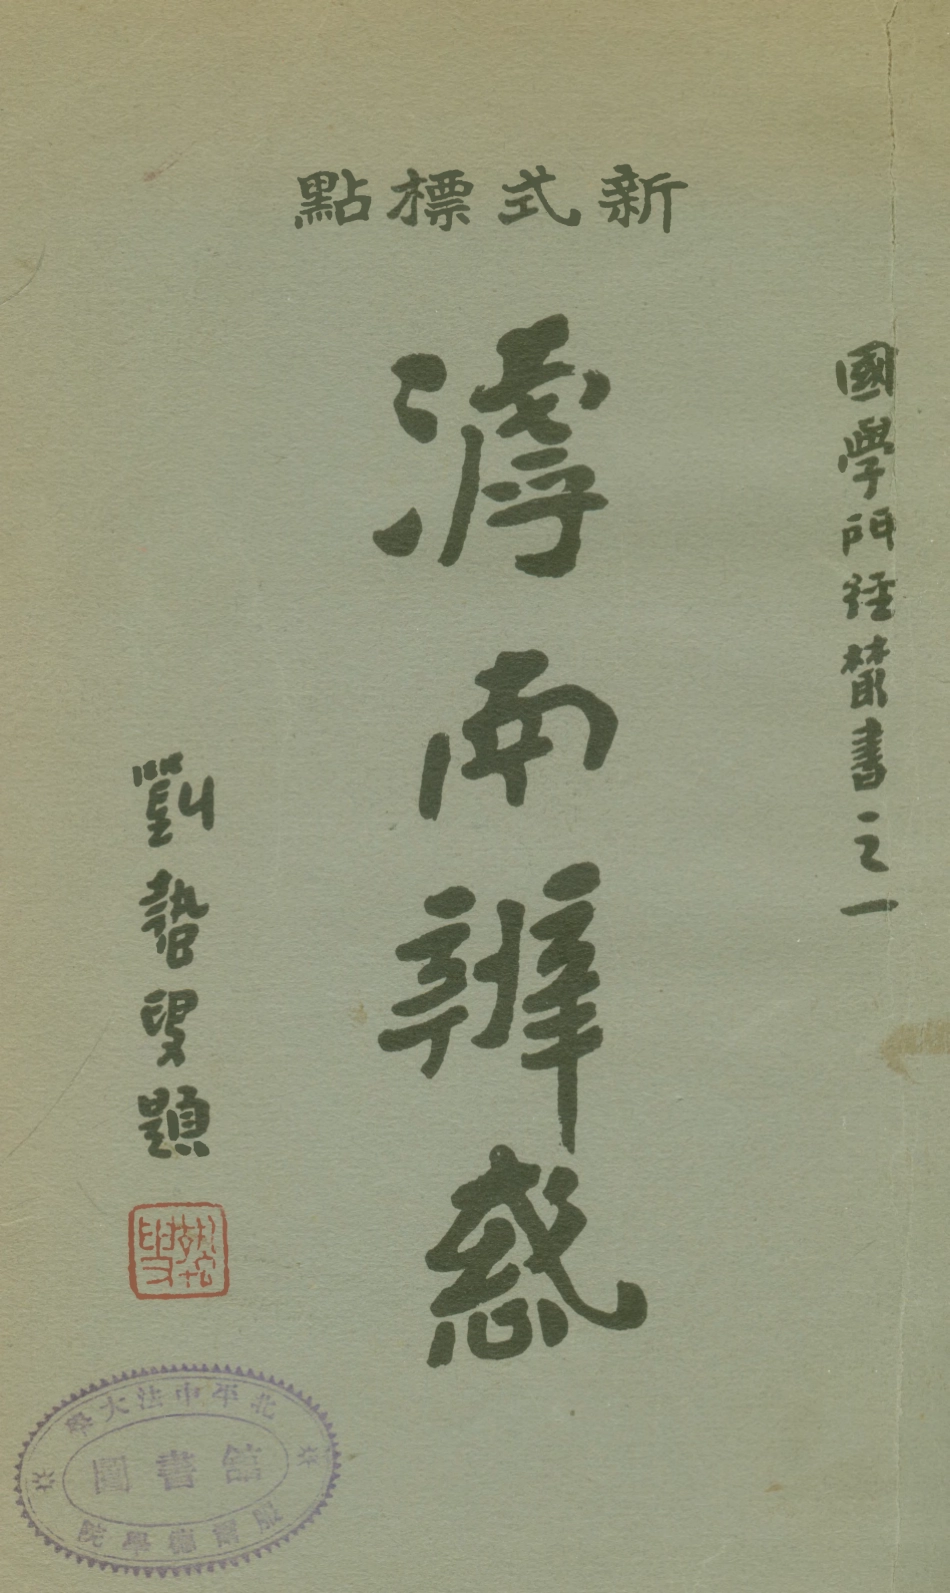 新式標點
國學門徑叢書之一
滹南辨惑
劉蟄叟題
北平中法大學
圖書館
服爾德學院